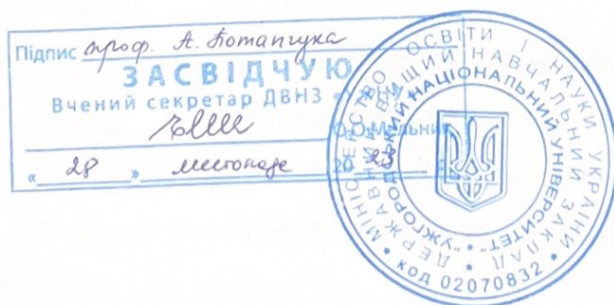 Підпис проф. А. Потапчука
ЗАСВІДЧУЮ
Вчений секретар ДВНЗ
О.О. Мельник
« 28 » листопада 20 23
МІНІСТЕРСТВО ОСВІТИ І НАУКИ УКРАЇНИ
ДЕРЖАВНИЙ ВИЩИЙ НАВЧАЛЬНИЙ ЗАКЛАД
"УЖГОРОДСЬКИЙ НАЦІОНАЛЬНИЙ УНІВЕРСИТЕТ"
* код 02070832 *